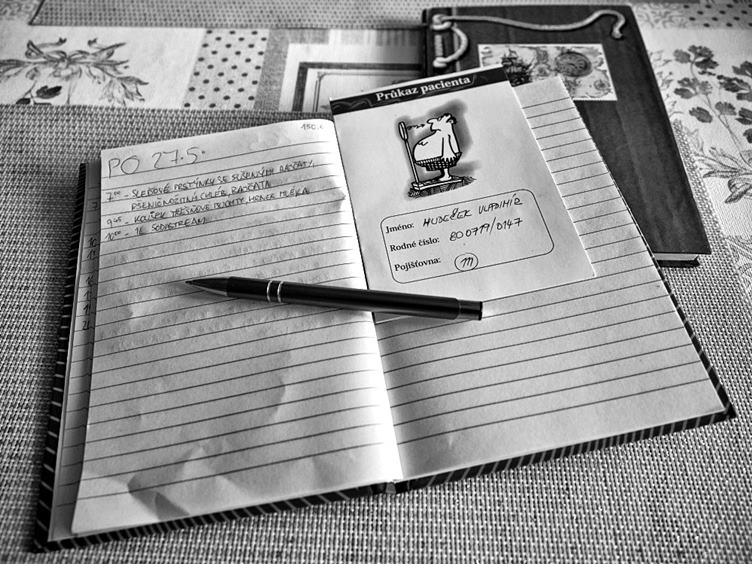 PO 27.5.
7⁰⁰ - SLEĎOVÉ PRSTÝNKY SE SUŠENÝM RAJČATY,
PŠENIČNOŽITNÝ CHLÉB, RAJČATA
9⁴⁵ - KOUSEK TŘEŠŇOVÉ BUCHTY, HRNEK MLÉKA
10⁰⁰ - 1L SODASTREAM
Průkaz pacienta
Jméno: HUDEČEK VLADIMÍR
Rodné číslo: 800719/0147
Pojišťovna: 111